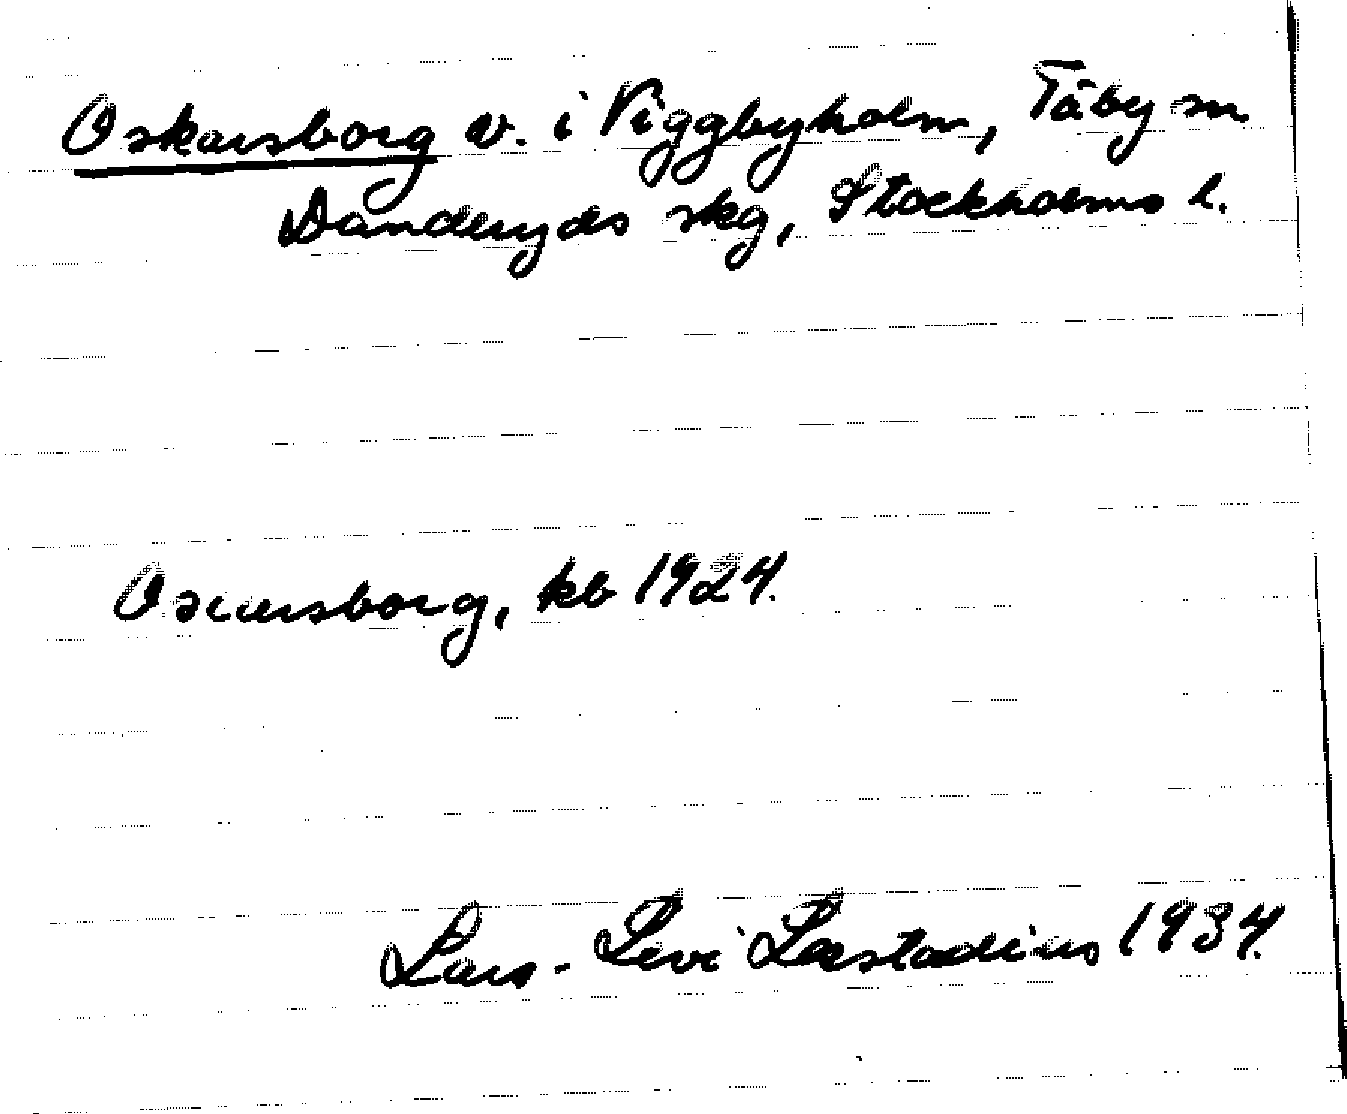 Oskarsborg v. i Viggbyholm, Täby sn
Danderyds skg, Stockholms l.
Oscarsborg, kb 1924.
Lars-Levi Læstadius 1934.